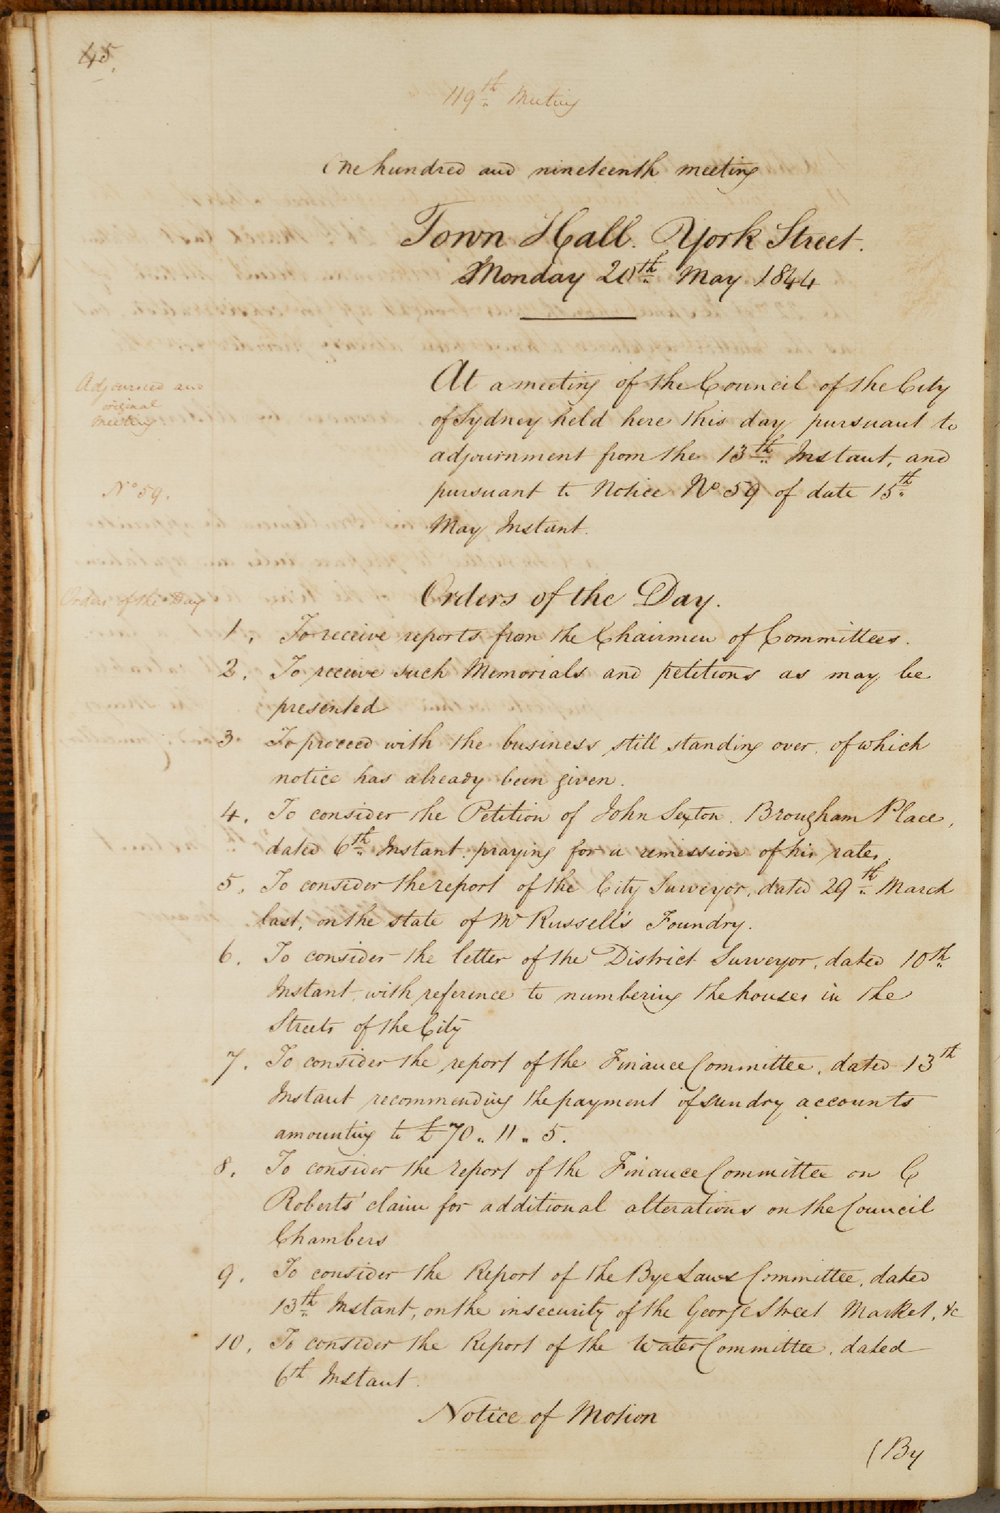 45.
119th Meeting
One hundred and nineteenth meeting
Town Hall. York Street.
Monday 20th May 1844
Adjourned and
original
Meeting
At a meeting of the Council of the City
of Sydney held here this day pursuant to
adjournment from the 13th Instant, and
No 59.
pursuant to Notice No 59 of date 15th
May Instant.
Orders of the Day
Orders of the Day.
1. To receive reports from the Chairmen of Committees.
2. To receive such Memorials and petitions as may be
presented
3 To proceed with the business still standing over, of which
notice has already been given.
4. To consider the Petition of John Sexton. Brougham Place,
dated 6th Instant praying for a remission of his rates.
5. To consider the report of the City Surveyor, dated 29th March
last, on the state of Mr Russell's Foundry.
6. To consider the letter of the District Surveyor, dated 10th
Instant, with reference to numbering the houses in the
Streets of the City
7. To consider the report of the Finance Committee, dated 13th
Instant recommending the payment of sundry accounts
amounting to £70.. 11.. 5.
8. To consider the report of the Finance Committee on C
Roberts' claim for additional alterations on the Council
Chambers
9. To consider the Report of the Bye Laws Committee, dated
13th Instant, on the insecurity of the George Street Market, &c
10. To consider the Report of the Water Committee, dated
6th Instant.
Notice of Motion
(By